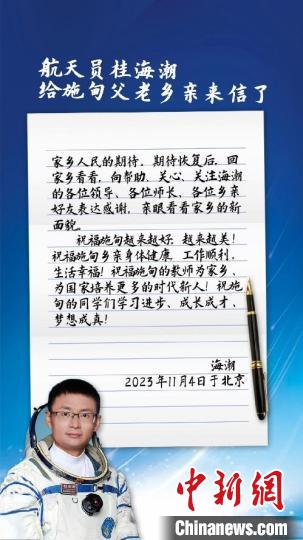 航天员桂海潮
给施甸父老乡亲来信了
家乡人民的期待。期待恢复后，回
家乡看看，向帮助、关心、关注海潮
的各位领导、各位师长、各位乡亲
好友表达感谢，亲眼看看家乡的新
面貌。
祝福施甸越来越好，越来越美！
祝福施甸乡亲身体健康，工作顺利，
生活幸福！祝福施甸的教师为家乡、
为国家培养更多的时代新人！祝施
甸的同学们学习进步、成长成才、
梦想成真！
海潮
2023年11月4日于北京
中新网
Chinanews.com